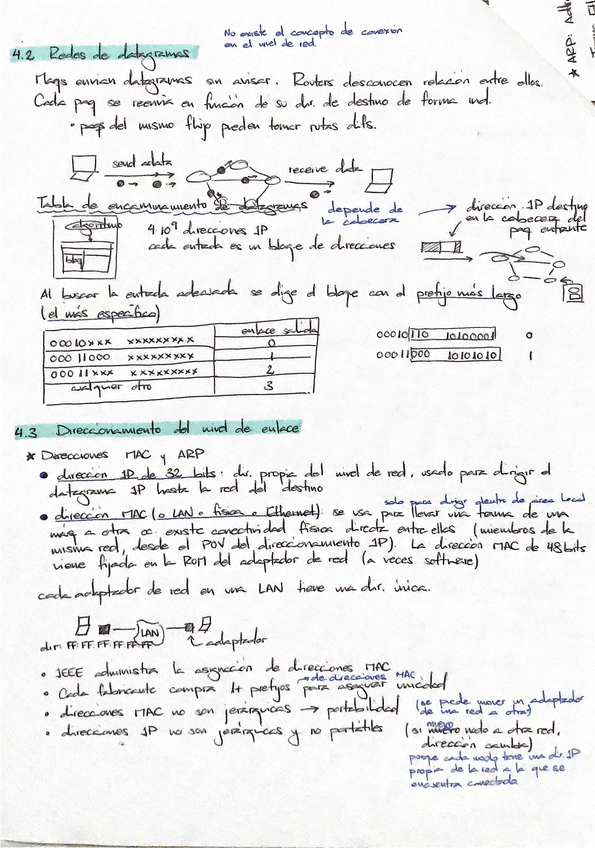 No existe el concepto de conexión
en el nivel de red.
4.2 Redes de datagramas
Maqs envían datagramas sin avisar. Routers desconocen relación entre ellos.
Cada paq se reenvía en función de su dir. de destino de forma ind.
• paqs del mismo flujo pueden tomar rutas difs.
send data
receive data
Tabla de encaminamiento de datagramas
depende de
la cabecera
dirección IP destino
en la cabecera del
paq entrante
algoritmo
bloq
4·10⁹ direcciones IP
cada entrada es un bloque de direcciones
Al buscar la entrada adecuada se elige el bloque con el prefijo más largo
(el más específico)
enlace salida
00010xxx xxxxxxxxx 0
00011000 xxxxxxxxx 1
00011xxx xxxxxxxxx 2
cualquier otro 3
00010110 10100001 0
00011000 10101010 1
4.3 Direccionamiento del nivel de enlace
★ Direcciones MAC y ARP
• dirección IP de 32 bits: dir. propia del nivel de red, usado para dirigir el
datagrama IP hasta la red del destino
solo para dirigir dentro de área local
• dirección MAC (o LAN o física o Ethernet): se usa para llevar una trama de una
máq a otra cc. existe conectividad física directa entre ellas (miembros de la
misma red, desde el POV del direccionamiento IP). La dirección MAC de 48 bits
viene fijada en la ROM del adaptador de red (a veces software)
cada adaptador de red en una LAN tiene una dir. única.
LAN
dir: FF:FF:FF:FF:FF:FF
adaptador
• IEEE administra la asignación de direcciones MAC
→ de direcciones MAC
• Cada fabricante compra 1+ prefijos para asegurar unicidad
• direcciones MAC no son jerárquicas → portabilidad (se puede mover un adaptador
de una red a otra)
• direcciones IP no son jerárquicas y no portátiles (si muevo nodo a otra red,
muevo
dirección cambia)
porque cada nodo tiene una dir. IP
propia de la red a la que se
encuentra conectada
★ ARP: